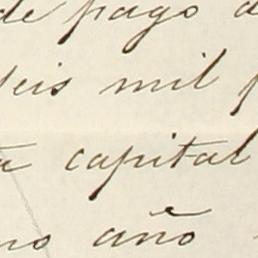 de pago
seis mil
capital
año